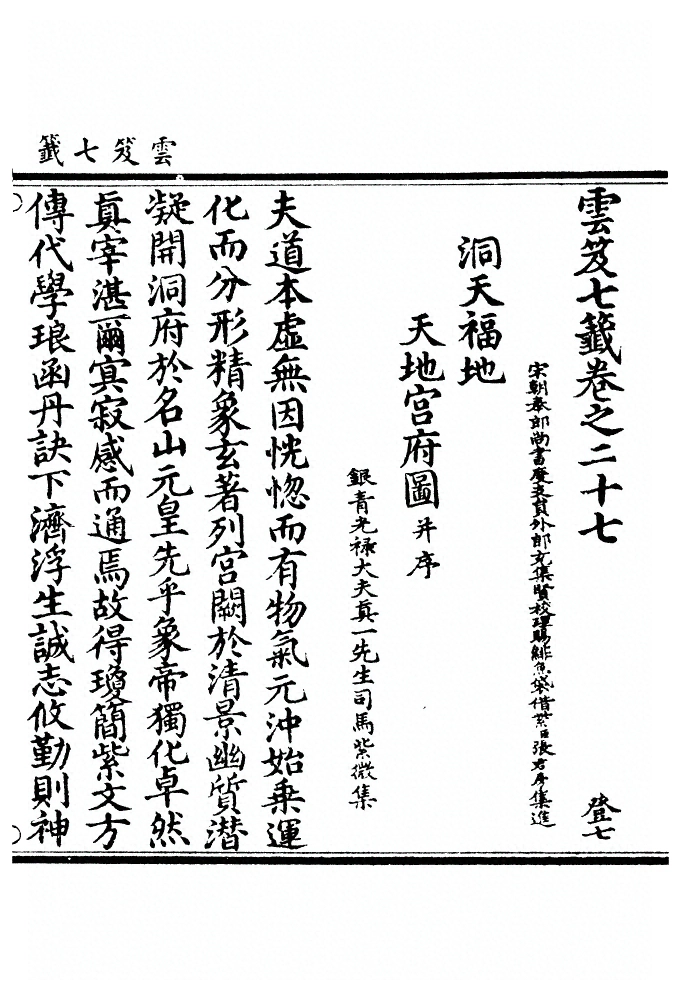 雲笈七籤
雲笈七籤卷之二十七
登七
宋朝奉郎尚書度支員外郎充集賢校理賜緋魚袋借紫臣張君房集進
洞天福地
天地宮府圖并序
銀青光禄大夫真一先生司馬紫微集
夫道本虛無因恍惚而有物氣元沖始乗運
化而分形精象玄著列宮闕於清景幽質潛
凝開洞府於名山元皇先乎象帝獨化卓然
真宰湛爾冥寂感而通焉故得瓊簡紫文方
傳代學琅函丹訣下濟浮生誠志攸勤則神